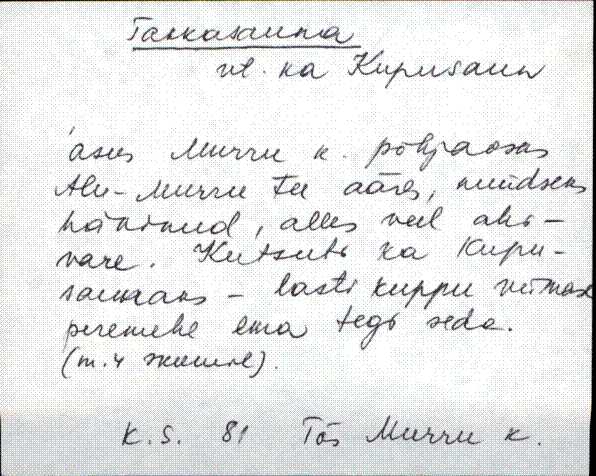 Taskasauna
vt. ka Kupusaun
asus Murru k. põhjaosas
Alu-Murru tee ääres, nüüdseks
hävinud, alles veel ahi-
vare. Kutsuti ka Kupu-
saunaks - lasti kuppu viimase
peremehe ema tegi seda.
K.S. 81 Tõs Murru k.